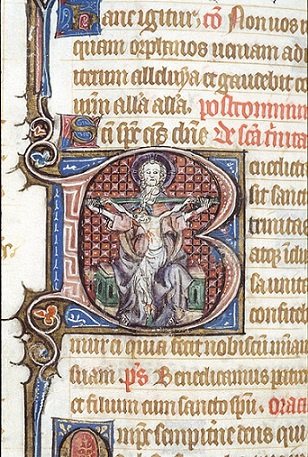 Hanc igitur. co Non uos
quam orphanos ueniam ad
iterum alleluya et gaudebit
urm alla alla. postcommuni
Sci sps qs dne De sca trinita
Benedicta
sit sanc
trinitas
atqz indi
sa unita
confite
mur ei quia fecit nobiscum
suam. ps Benedicamus
et filium cum sancto spu. orati
Omps sempiterne deus qui